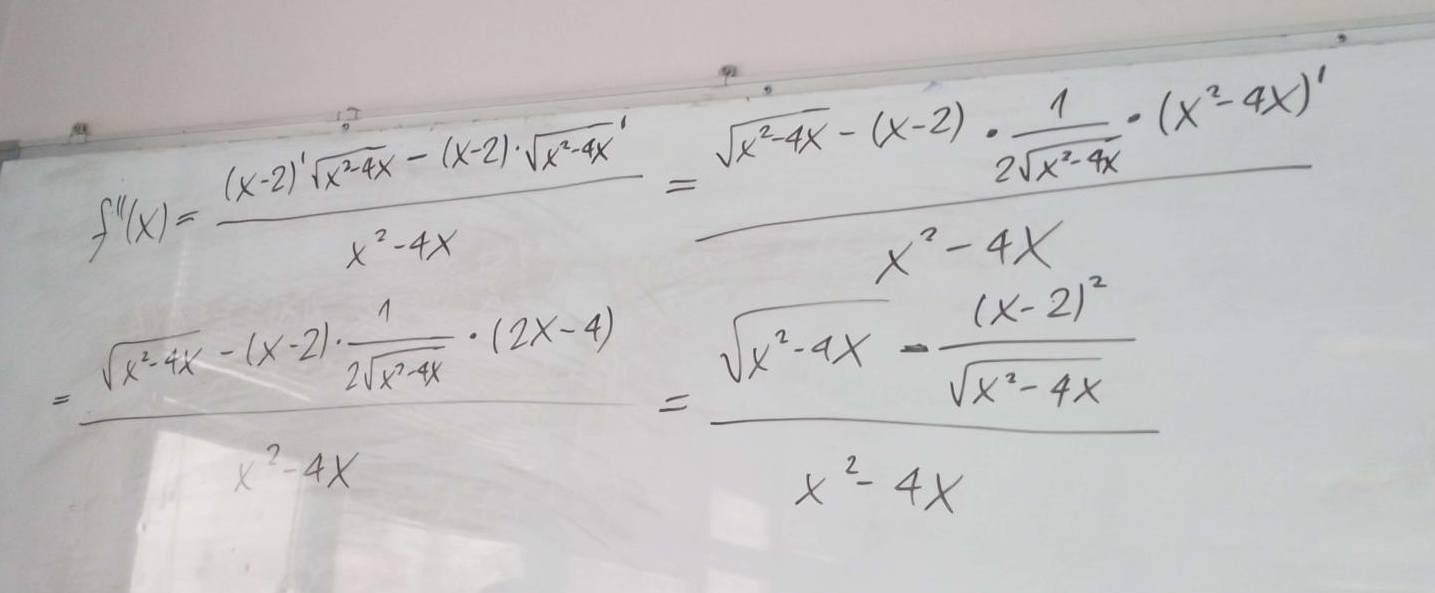 f''(x) = \frac{(x-2)'\sqrt{x^2-4x} - (x-2)\cdot\sqrt{x^2-4x}'}{x^2-4x} = \frac{\sqrt{x^2-4x} - (x-2)\cdot\frac{1}{2\sqrt{x^2-4x}}\cdot(x^2-4x)'}{x^2-4x}
= \frac{\sqrt{x^2-4x} - (x-2)\cdot\frac{1}{2\sqrt{x^2-4x}}\cdot(2x-4)}{x^2-4x} = \frac{\sqrt{x^2-4x} - \frac{(x-2)^2}{\sqrt{x^2-4x}}}{x^2-4x}